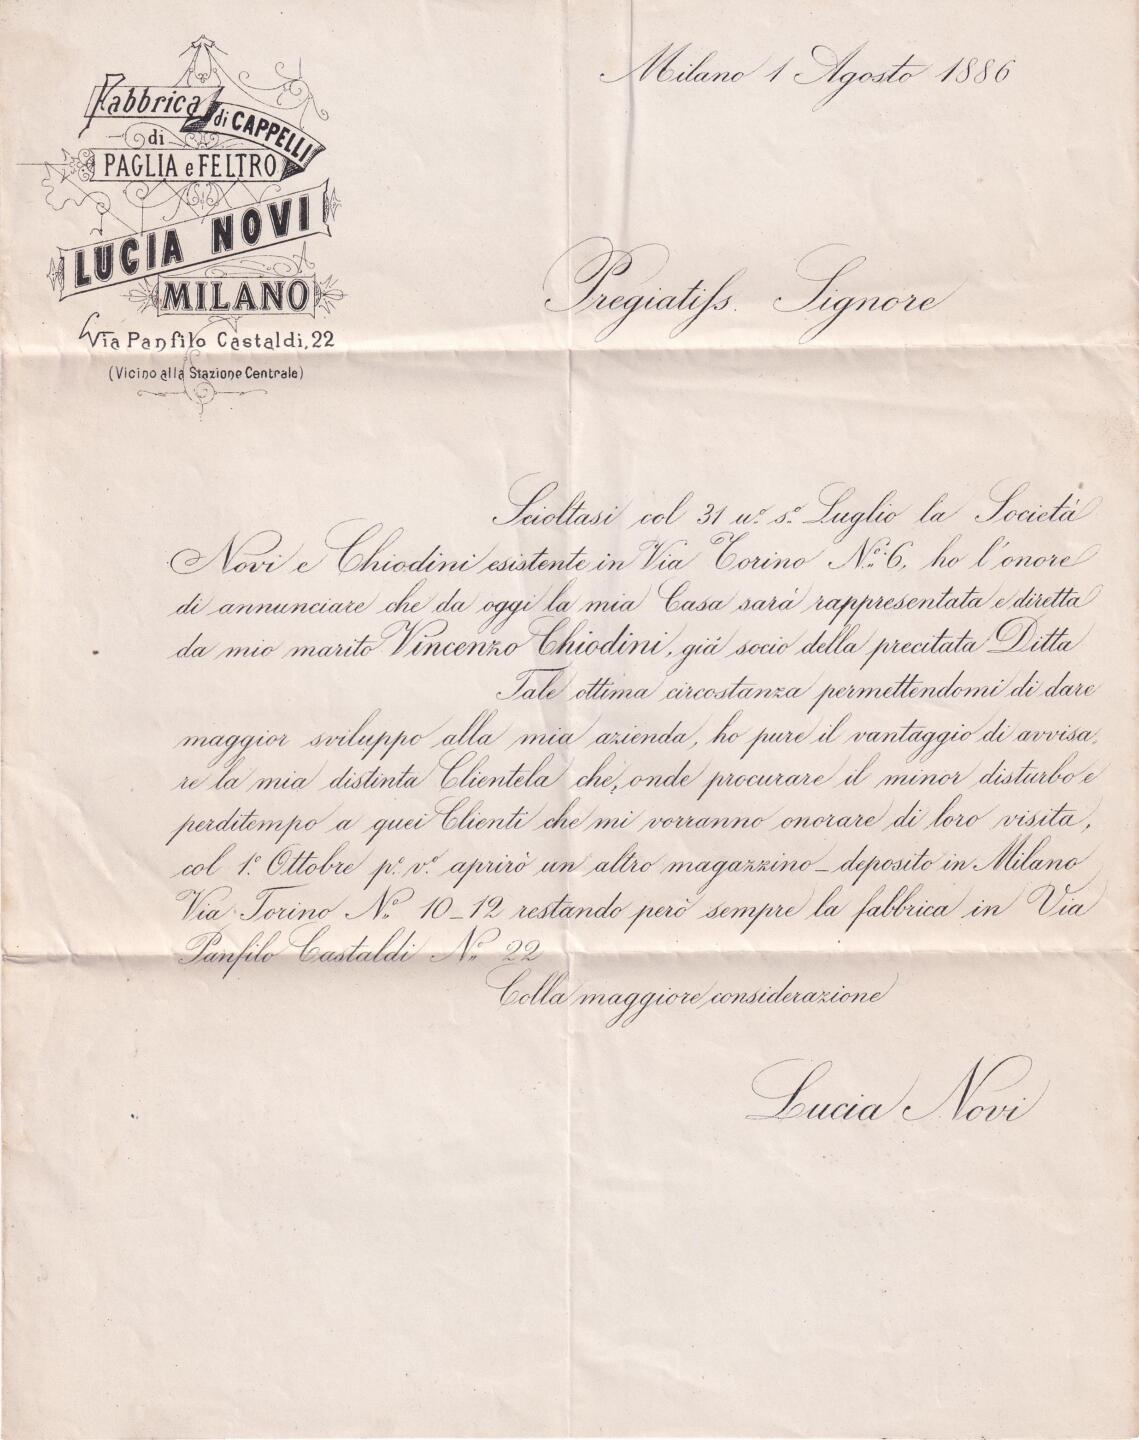 Fabbrica di CAPPELLI
di
PAGLIA e FELTRO
LUCIA NOVI
MILANO
Via Panfilo Castaldi, 22
(Vicino alla Stazione Centrale)
Milano 1 Agosto 1886
Pregiatiss. Signore
Scioltasi col 31 u.º s.º Luglio la Società
Novi e Chiodini esistente in Via Torino N.º 6, ho l'onore
di annunciare che da oggi la mia Casa sarà rappresentata e diretta
da mio marito Vincenzo Chiodini, già socio della precitata Ditta
Tale ottima circostanza permettendomi di dare
maggior sviluppo alla mia azienda, ho pure il vantaggio di avvisa-
re la mia distinta Clientela che, onde procurare il minor disturbo e
perditempo a quei Clienti che mi vorranno onorare di loro visita,
col 1.º Ottobre p.º v.º aprirò un altro magazzino - deposito in Milano
Via Torino N.º 10-12 restando però sempre la fabbrica in Via
Panfilo Castaldi N.º 22
Colla maggiore considerazione
Lucia Novi